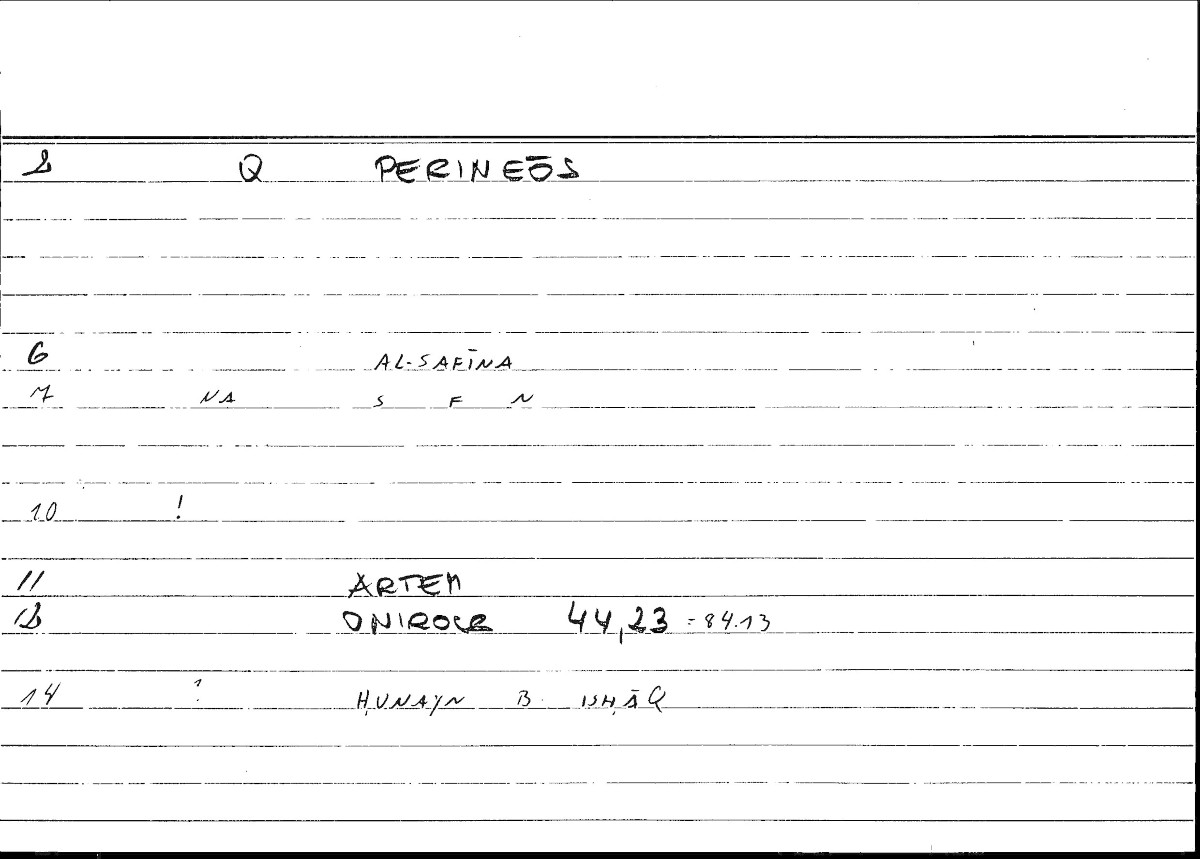 2 Q PERINEŌS
6 AL-SAFĪNA
7 NA S F N
10 !
11 ARTEM
12 ONIROCR 44,23 = 84.13
14 ? ḤUNAYN B. ISḤĀQ